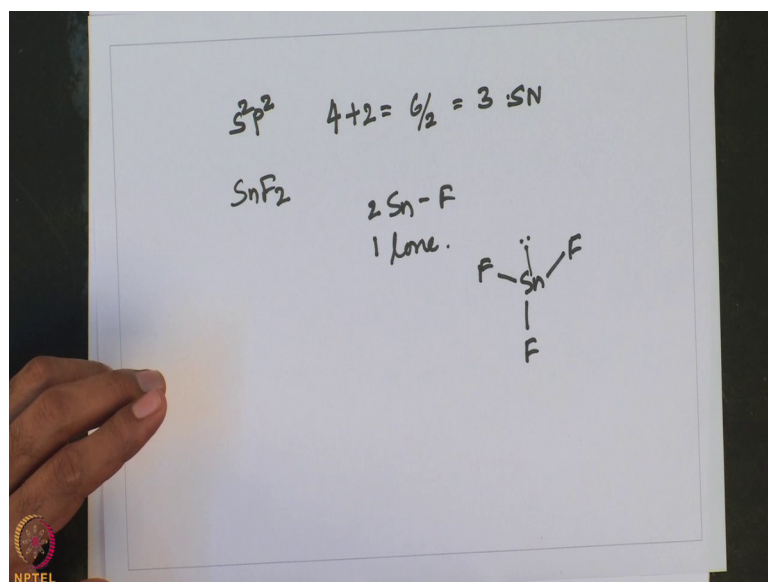 s²p² 4+2 = 6/2 = 3 SN
SnF₂
2 Sn-F
1 lone.
F Sn F
F
NPTEL